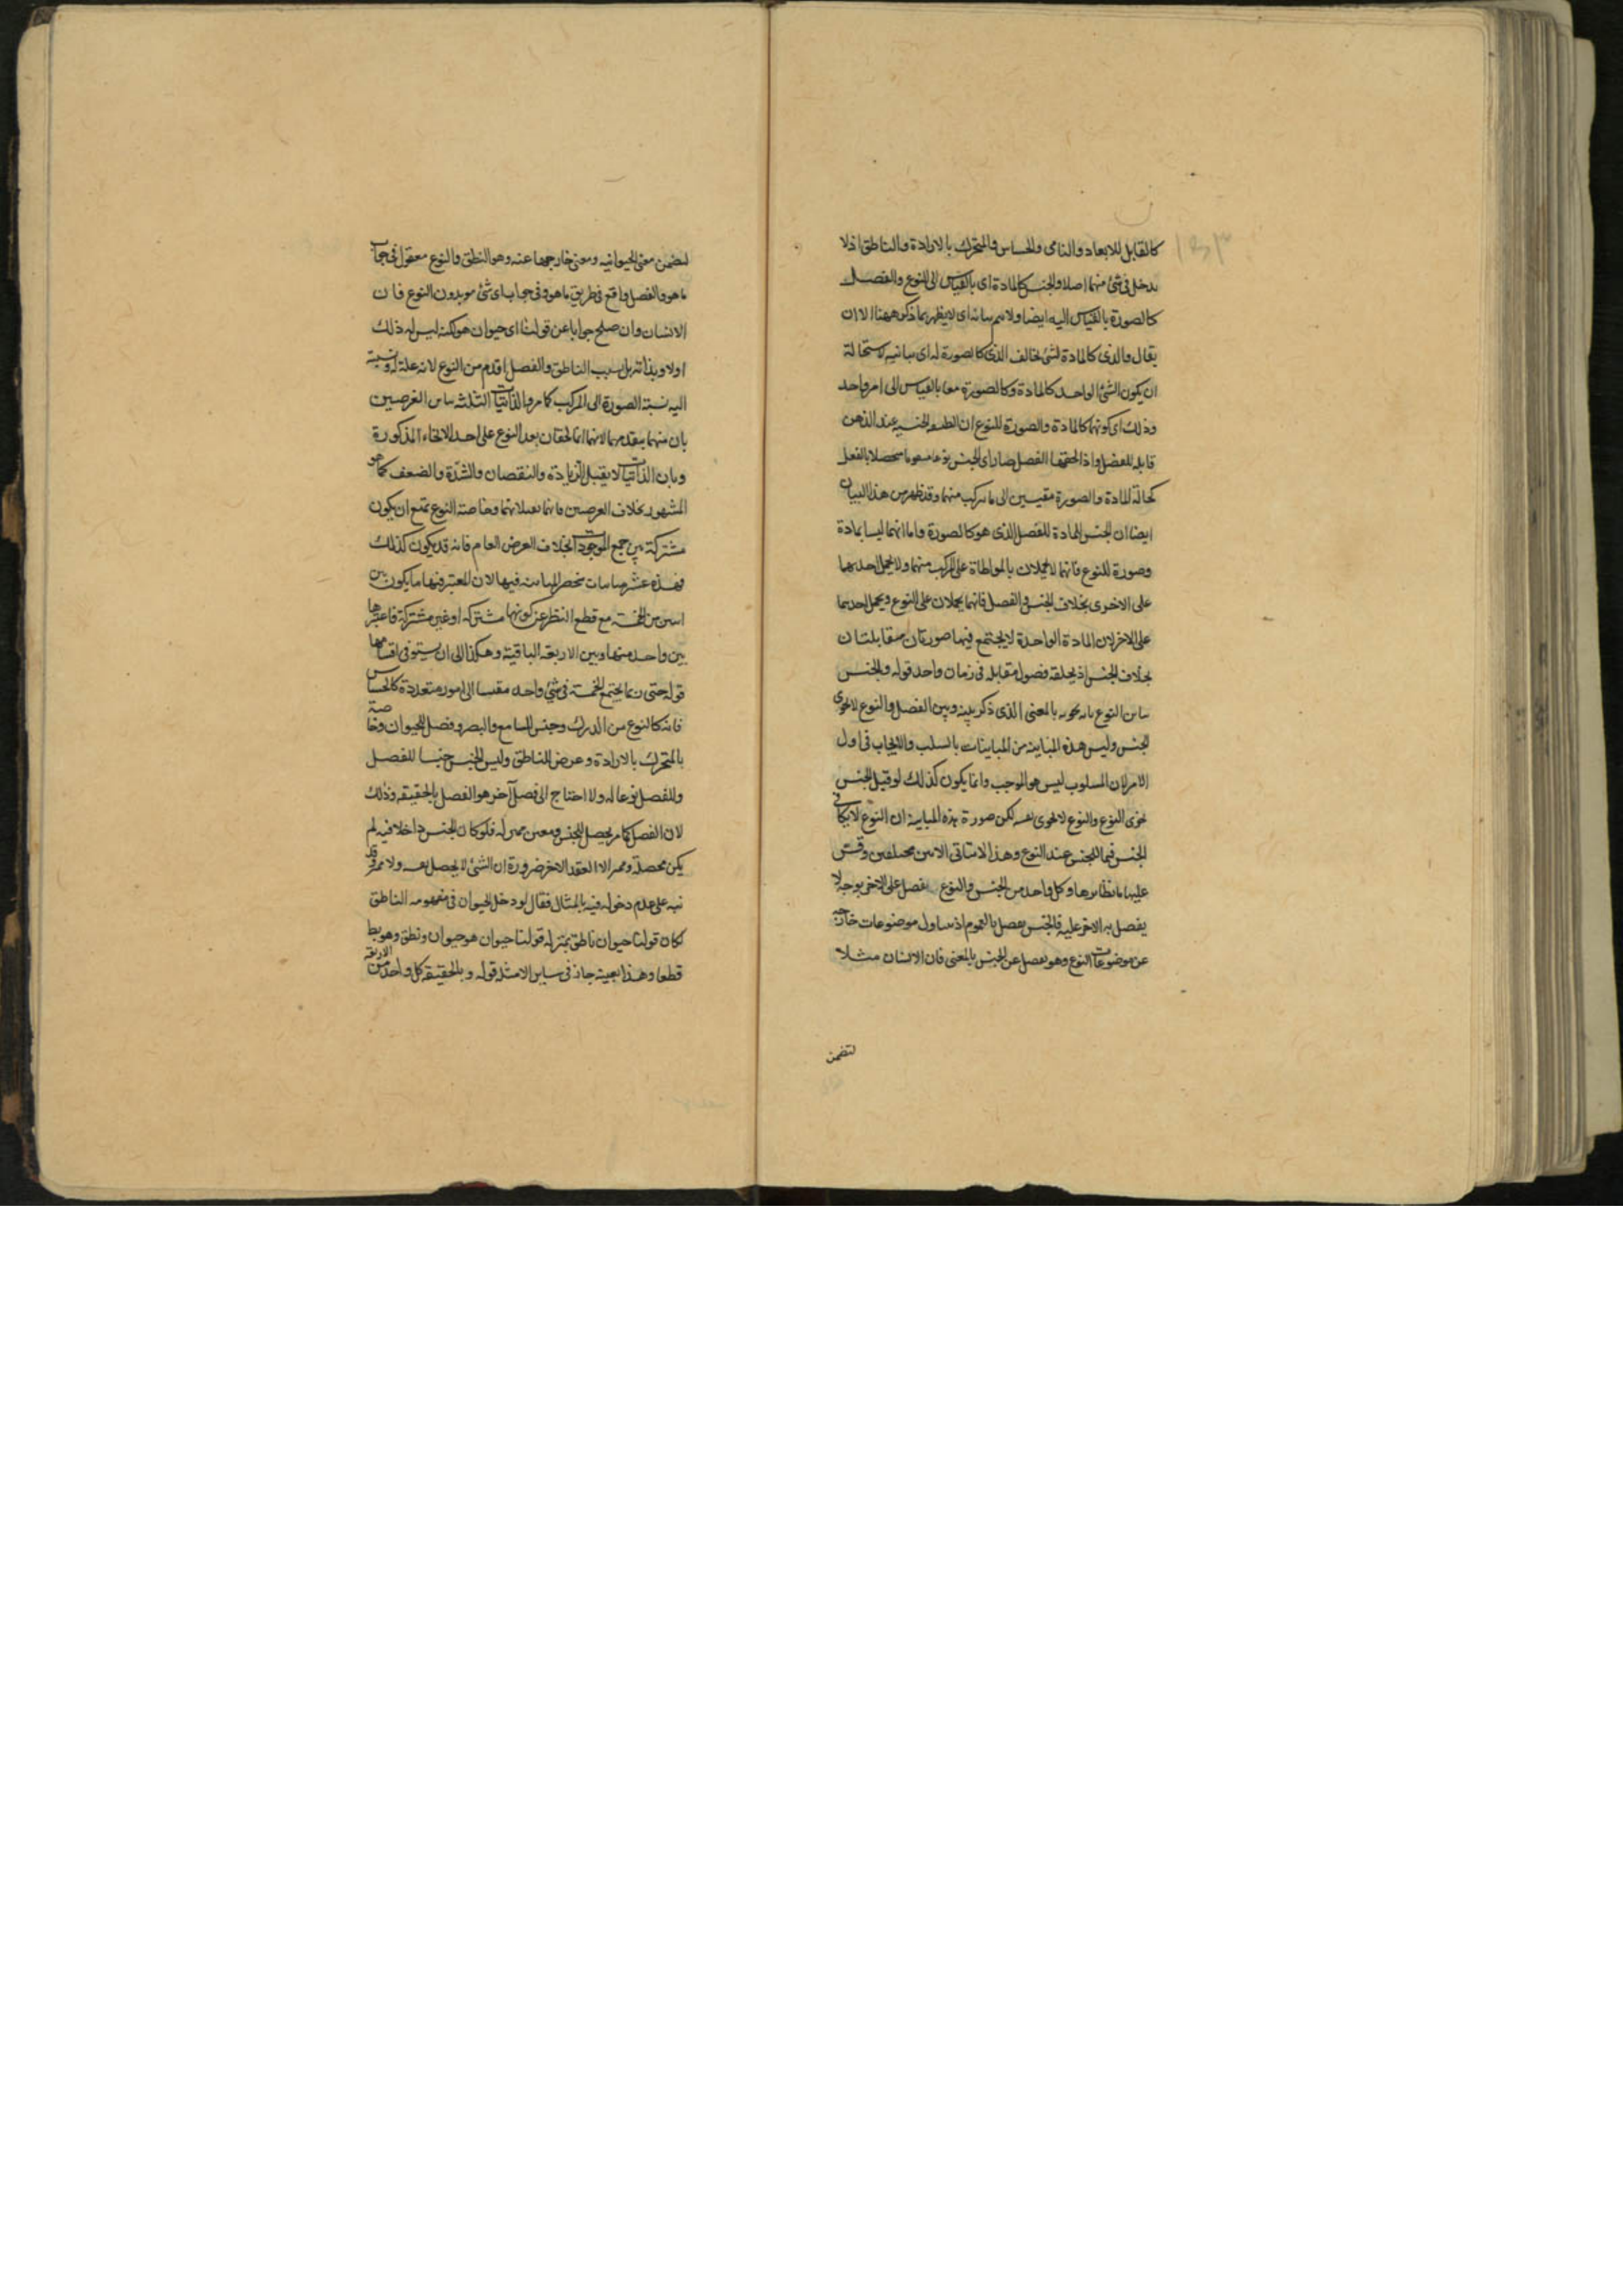 كالقابل للابعاد والنامى والحساس والمتحرك بالارادة والناطق اذ لا
يدخل فى شئ منهما اصلا والجنس كالمادة اى بالقياس الى النوع والفصل
كالصورة بالقياس اليه ايضا ولا يتم بيانه اى لا يظهر بما ذكر ههنا الا ان
يقال والذى كالمادة لشئ يخالف الذى كالصورة له اى يباينه لاستحالة
ان يكون الشئ الواحد كالمادة وكالصورة معا بالقياس الى امر واحد
وذلك اى كونهما كالمادة والصورة للنوع ان الطبيعة الجنسية عند الذهن
قابلة للفصل واذا لحقها الفصل صار اى الجنس نوعا متقوما متحصلا بالفعل
كحالة المادة والصورة مقيسين الى ما يتركب منهما وقد ظهر من هذا البيان
ايضا ان الجنس كالمادة للفصل الذى هو كالصورة واما انهما ليسا بمادة
وصورة للنوع فانهما لا يحملان بالمواطاة على المركب منهما ولا يحمل احديهما
على الاخرى بخلاف الجنس والفصل فانهما يحملان على النوع ويحمل احدهما
على الاخر لان المادة الواحدة لا يجتمع فيها صورتان متقابلتان
بخلاف الجنس اذ يلحقه فصول متقابلة فى زمان واحد قوله والجنس
يباين النوع بانه يحويه بالمعنى الذى ذكر بينه وبين الفصل والنوع لا يحوى
الجنس وليس هذه المباينة من المباينات بالسلب والايجاب فى اول
الامر لان المسلوب ليس هو الموجب وانما يكون كذلك لو قيل الجنس
يحوى النوع والنوع لا يحوى نفسه لكن صورة هذه المباينة ان النوع لا يكافى
الجنس فيما للجنس عند النوع وهذا لا يتاتى الا بين مختلفين وقس
عليها نظايرها وكل واحد من الجنس والنوع يفضل على الاخر بوجه لا
يفضل به الاخر عليه فالجنس يفضل بالعموم اذ يتناول موضوعات خارجة
عن موضوعات النوع وهو يفضل عن الجنس بالمعنى فان الانسان مثلا
لتضمن
لتضمن معنى الحيوانية ومعنى خارجها عنه وهو النطق والنوع مقول فى جواب
ما هو والفصل واقع فى طريق ما هو وفى جواب اى شئ هو بدون النوع فان
الانسان وان صلح جوابا عن قولنا اى حيوان هو لكنه ليس له ذلك
اولا وبذاته بل بسبب الناطق والفصل اقدم من النوع لانه علة له ونسبته
اليه نسبة الصورة الى المركب كما مر والذاتيات الثلثة يباين العرضيين
بان منهما يتقدمهما لانهما انما يلحقان بعد النوع على احد الانحاء المذكورة
وبان الذاتيات لا يقبل الزيادة والنقصان والشدة والضعف كما هو
المشهور بخلاف العرضيين فانهما يقبلانهما وخاصة النوع يمتنع ان يكون
مشتركة بين جميع الموجودات بخلاف العرض العام فانه قد يكون كذلك
فهذه عشر مباينات تنحصر المباينة فيها لان المعتبر فيها ما يكون بين
اثنين من الخمسة مع قطع النظر عن كونها مشتركة او غير مشتركة فاعتبرها
بين واحد منها وبين الاربعة الباقية وهكذا الى ان يستوفى اقسامها
قوله حتى ربما يجتمع الخمسة فى شئ واحد مقيسا الى امور متعددة كالحساس
فانه كالنوع من المدرك وجنس للسامع والبصر وفصل للحيوان وخاصة
بالمتحرك بالارادة وعرض للناطق وليس الجنس جنسا للفصل
وللفصل نوعا له ولا احتاج الى فصل آخر هو الفصل بالحقيقة وذلك
لان الفصل كما مر يحصل للجنس ومعين مميز له فلو كان الجنس داخلا فيه لم
يكن محصله ومميزه الا العقد الاخر ضرورة ان الشئ لا يحصل نفسه ولا يميزه وقد
نبه على عدم دخوله فيه بالمثال فقال لو دخل الحيوان فى مفهومه الناطق
لكان قولنا حيوان ناطق بمنزلة قولنا حيوان هو حيوان ونطق وهو بط
قطعا وهذا بعينه جار فى ساير الامثلة قوله وبالحقيقة كل واحد من الاربعة